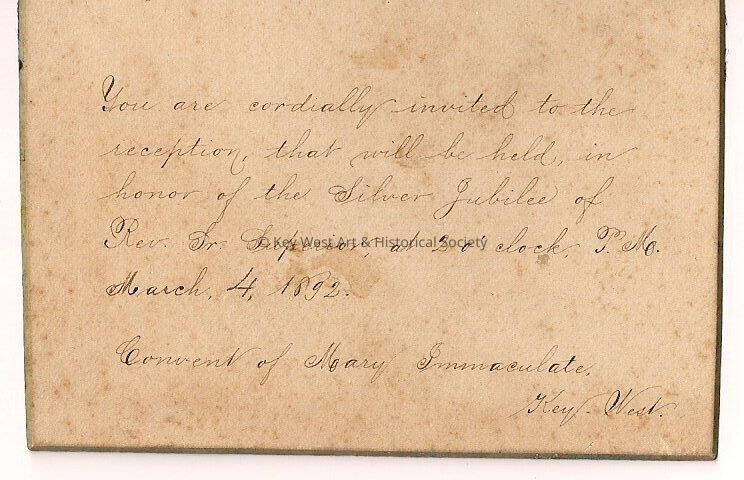 You are cordially invited to the
reception, that will be held, in
honor of the Silver Jubilee of
Rev. Sr. Superior, at 2 o'clock, P. M.
© Key West Art & Historical Society
March, 4, 1892.
Convent of Mary Immaculate.
Key-West.